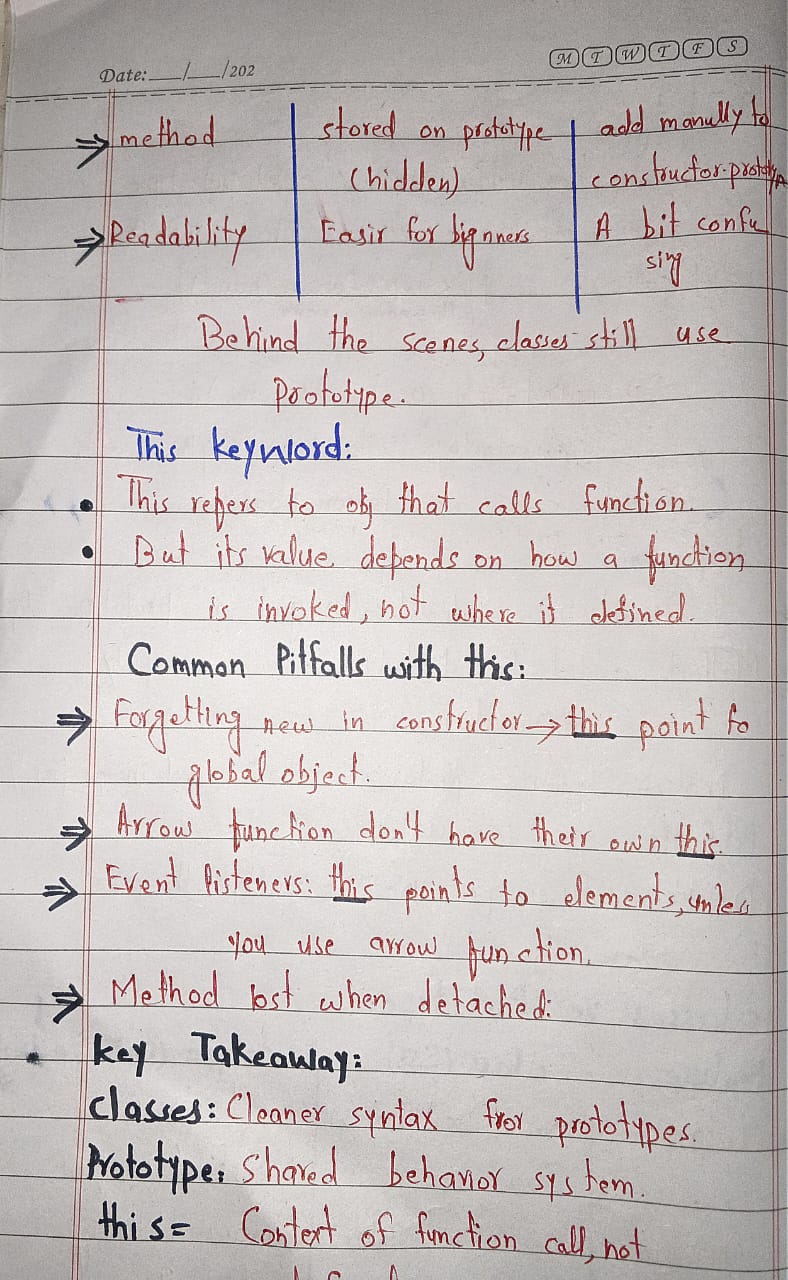 Date:___/___/202 M T W T F S
⇒ method | stored on prototype | add manully to
(hidden) constructor.prototype
⇒ Readability | Easir for bignners | A bit confu
sing
Behind the scenes, classes still use
Prototype.
This keyword:
• This refers to obj that calls function.
• But its value depends on how a function
is invoked, not where it defined.
Common Pitfalls with this:
⇒ Forgetting new in constructor → this point to
global object.
⇒ Arrow function don't have their own this.
⇒ Event listeners: this points to elements, unless
you use arrow function.
⇒ Method lost when detached:
• key Takeaway:
classes: Cleaner syntax for prototypes.
Prototype: Shared behavior system.
this = Context of function call, not